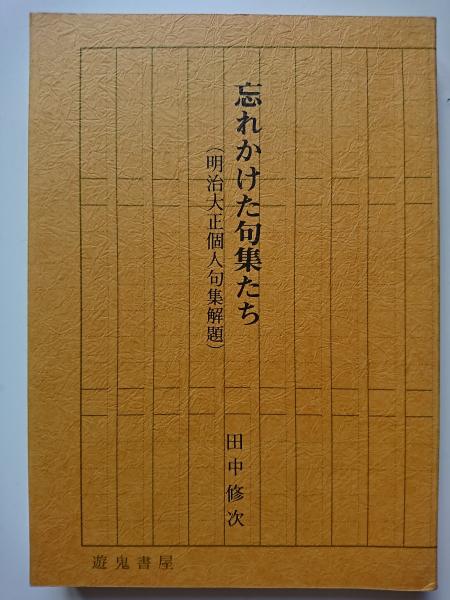 忘れかけた句集たち
（明治大正個人句集解題）
田中修次
遊鬼書屋